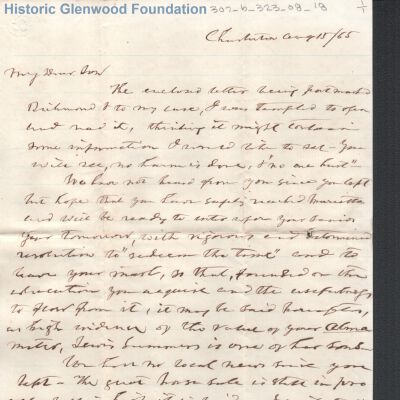 Historic Glenwood Foundation 302-6-323-08-18
Charleston Aug 15/65
My Dear Son
The enclosed letter being postmarked
Richmond & to my care, I was tempted to open
and read it, thinking it might contain
some information I would like to get - You
will see, no harm is done, & "no one hurt" -
We have not heard from you since you left
but hope that you have safely reached Marietta
and will be ready to enter upon your Senior
Year tomorrow, with vigorous and determined
resolution to "redeem the time" and to
leave your mark, so that, founded on the
education you acquire and the usefulness
to flow from it, it may be said hereafter,
as high evidence of the value of your Alma
mater, Lewis Summers is one of her sons
We have no local news since you
left - The great horse sale is still in pro